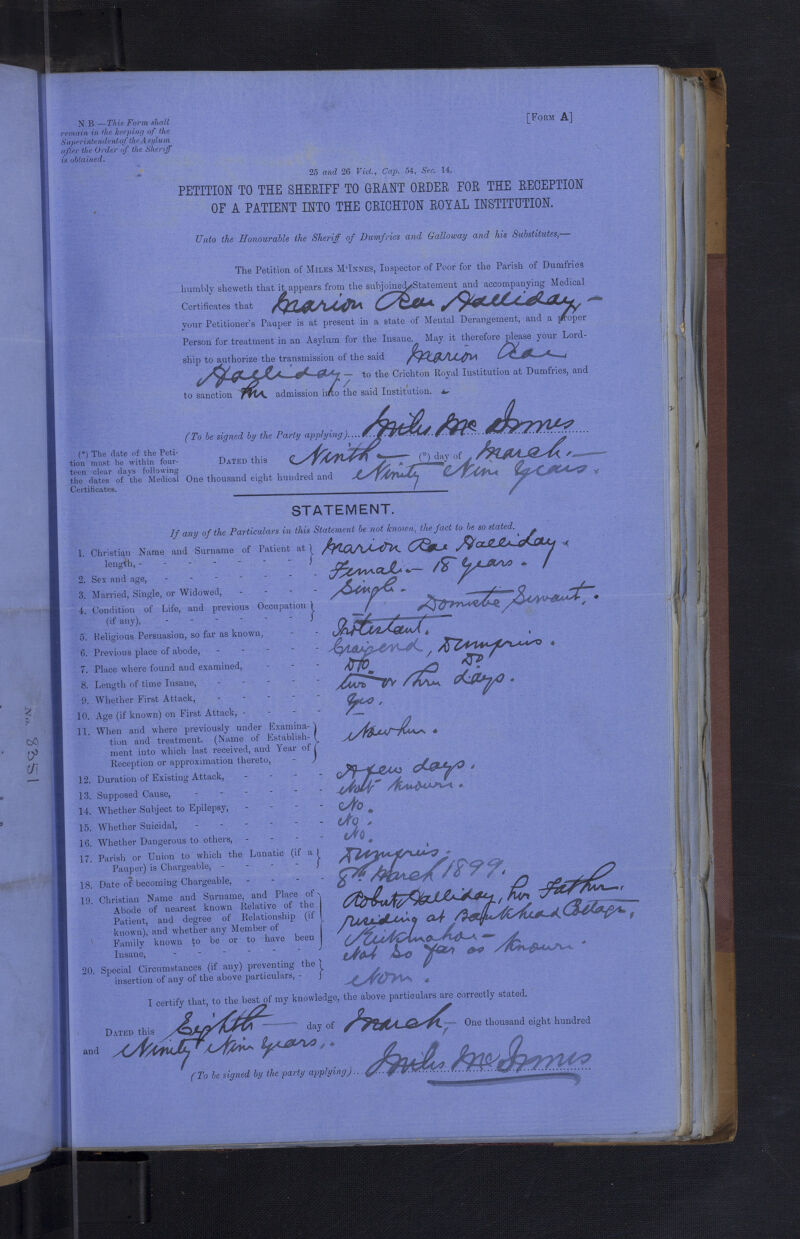 N.B.—This Form shall
remain in the keeping of the
Superintendent of the Asylum
after the Order of the Sheriff
is obtained.
[FORM A]
25 and 26 Vict., Cap. 54, Sec. 14.
PETITION TO THE SHERIFF TO GRANT ORDER FOR THE RECEPTION
OF A PATIENT INTO THE CRICHTON ROYAL INSTITUTION.
Unto the Honourable the Sheriff of Dumfries and Galloway and his Substitutes,—
The Petition of MILES M'INNES, Inspector of Poor for the Parish of Dumfries
humbly sheweth that it appears from the subjoined Statement and accompanying Medical
Certificates that Marion Rae Halliday,—
your Petitioner's Pauper is at present in a state of Mental Derangement, and a proper
Person for treatment in an Asylum for the Insane. May it therefore please your Lord-
ship to authorize the transmission of the said Marion Rae
Halliday,— to the Crichton Royal Institution at Dumfries, and
to sanction her admission into the said Institution.
(To be signed by the Party applying) Miles McInnes
(*) The date of the Peti-
tion must be within four-
teen clear days following
the dates of the Medical
Certificates.
DATED this Ninth — (*) day of March,—
One thousand eight hundred and Ninety Nine Years.
STATEMENT.
If any of the Particulars in this Statement be not known, the fact to be so stated.
1. Christian Name and Surname of Patient at
length, - Marion Rae Halliday.
2. Sex and age, - Female.— 18 years.
3. Married, Single, or Widowed, - Single.
4. Condition of Life, and previous Occupation
(if any), - Domestic Servant.
5. Religious Persuasion, so far as known, - Protestant.
6. Previous place of abode, - Craigend, Dumfries.
7. Place where found and examined, - Do. Do
8. Length of time Insane, - two or three days.
9. Whether First Attack, - Yes.
10. Age (if known) on First Attack, - —
11. When and where previously under Examina-
tion and treatment. (Name of Establish-
ment into which last received, and Year of
Reception or approximation thereto, Nowhere.
12. Duration of Existing Attack, - A few days.
13. Supposed Cause, - Not known.
14. Whether Subject to Epilepsy, - No.
15. Whether Suicidal, - No.
16. Whether Dangerous to others, - No.
17. Parish or Union to which the Lunatic (if a
Pauper) is Chargeable, - Dumfries.
18. Date of becoming Chargeable, - 8th March 1899.
19. Christian Name and Surname, and Place of
Abode of nearest known Relative of the
Patient, and degree of Relationship (if
known), and whether any Member of
Family known to be or to have been
Insane, -
Robert Halliday, her Father,
residing at Bankhead Cottage,
Kirkmahoe —
Not so far as known.
20. Special Circumstances (if any) preventing the
insertion of any of the above particulars, - None.
I certify that, to the best of my knowledge, the above particulars are correctly stated.
DATED this Eighth — day of March,— One thousand eight hundred
and Ninety Nine Years.
(To be signed by the party applying) Miles McInnes
No. 8351